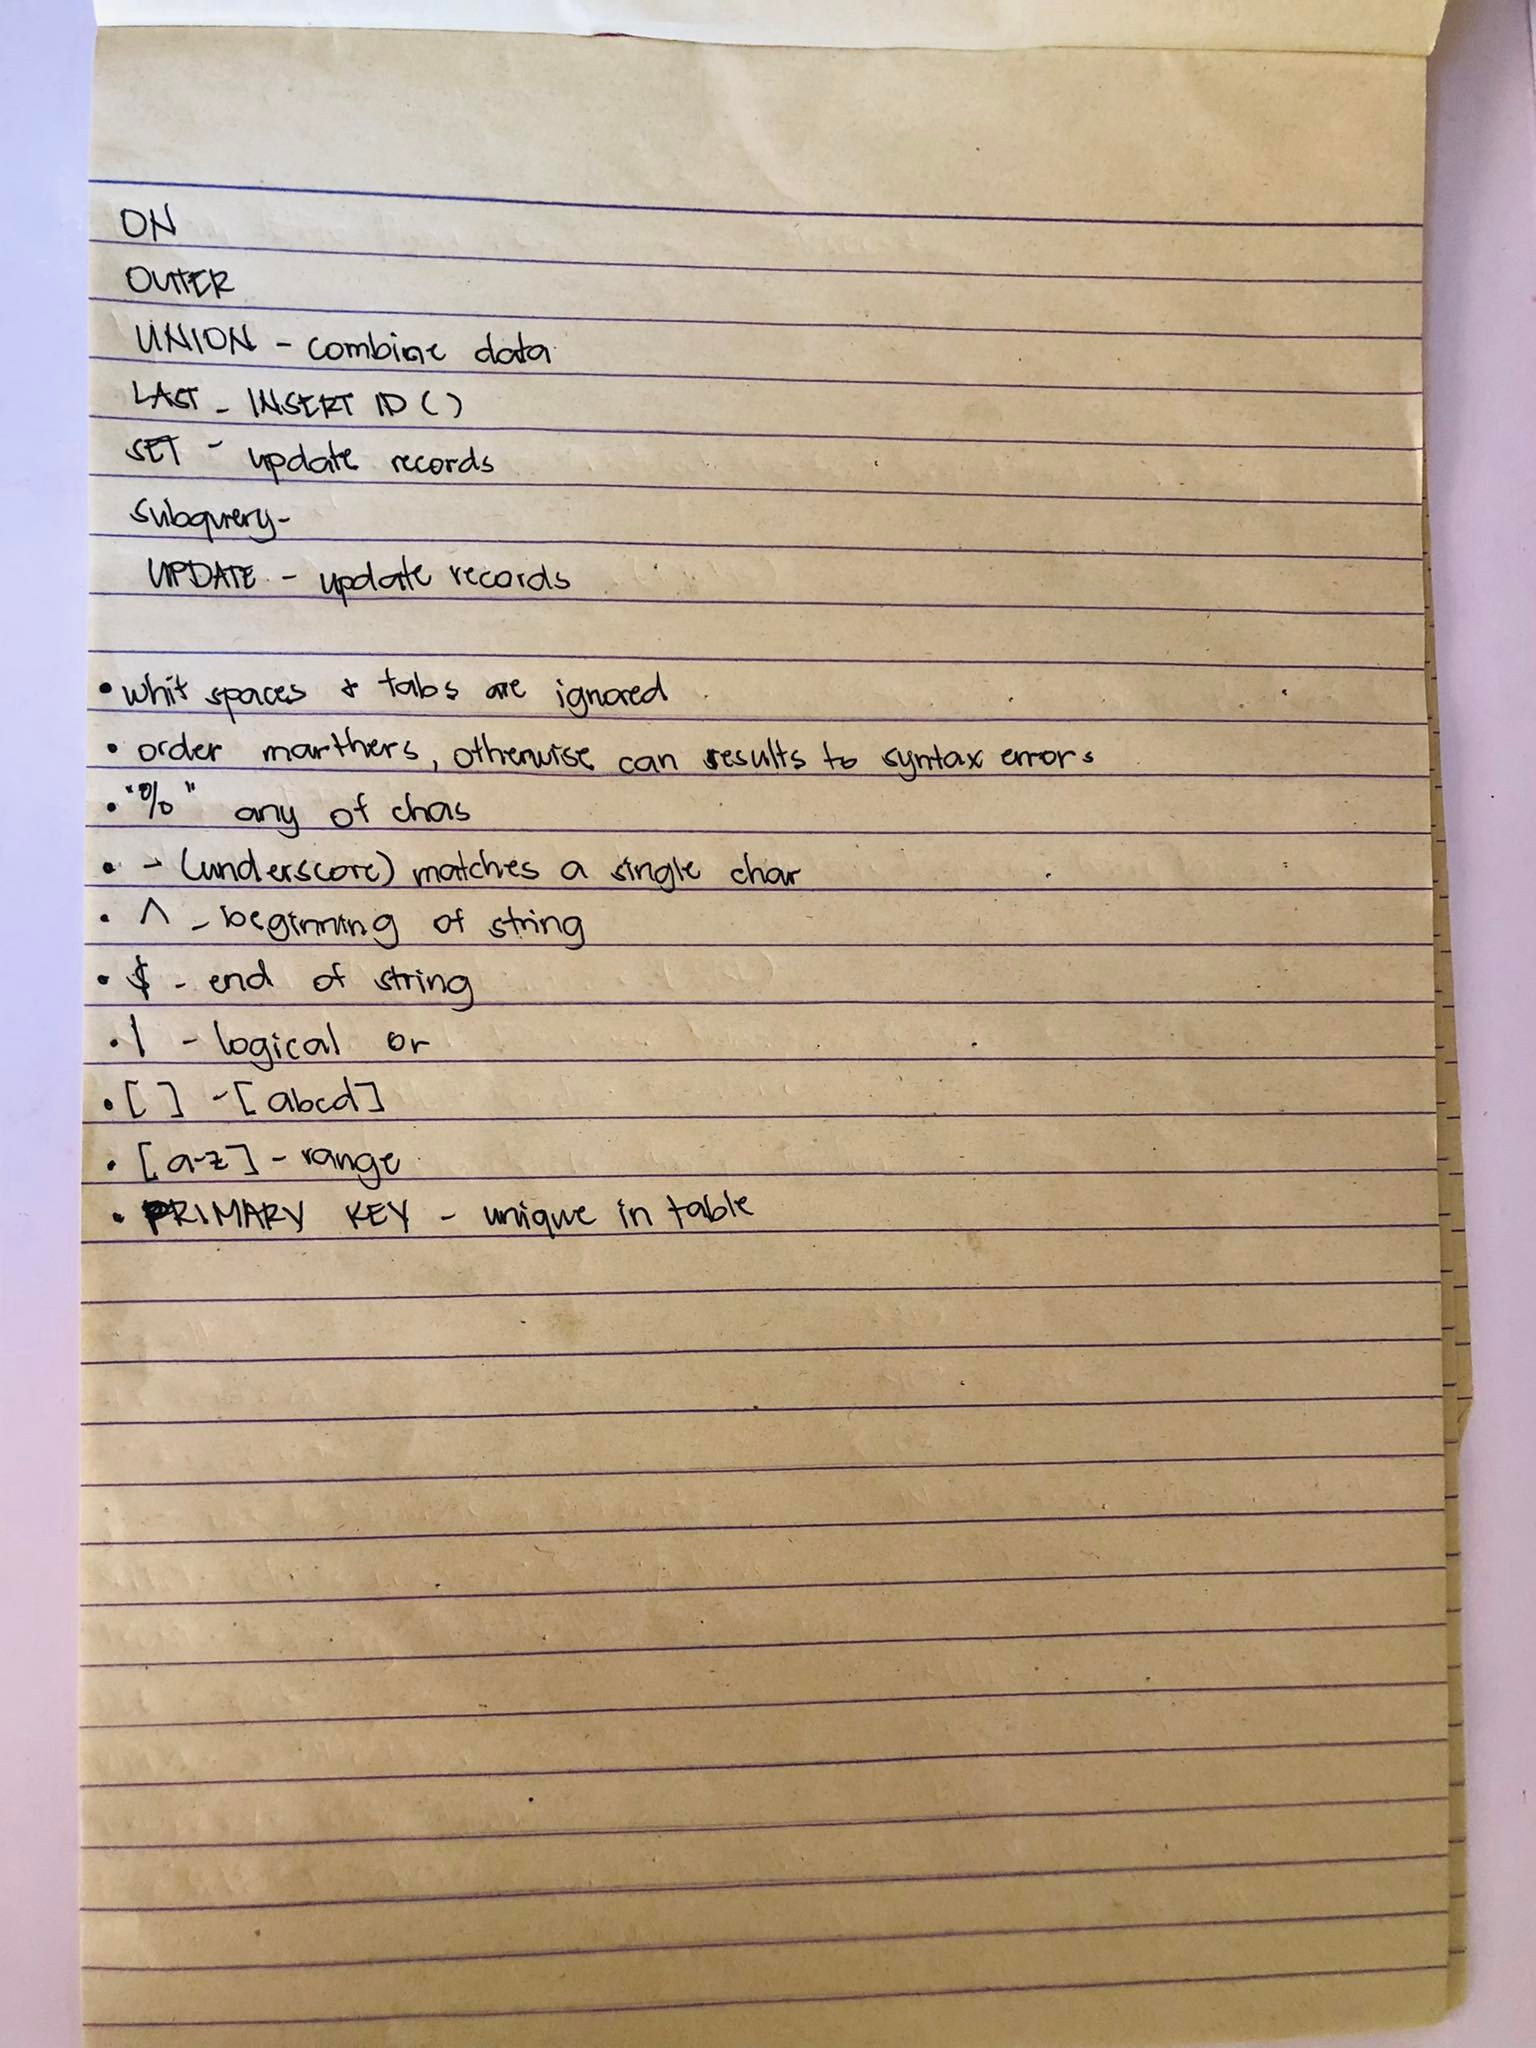 ON
OUTER
UNION - combine data
LAST_INSERT ID ()
SET - update records
subquery-
UPDATE - update records
• whit spaces & tabs are ignored
• order marthers, otherwise can results to syntax errors
• "%" any of chas
• - (underscore) matches a single char
• ^ - beginning of string
• $ - end of string
• | - logical or
• [ ] - [abcd]
• [a-z] - range
• PRIMARY KEY - unique in table